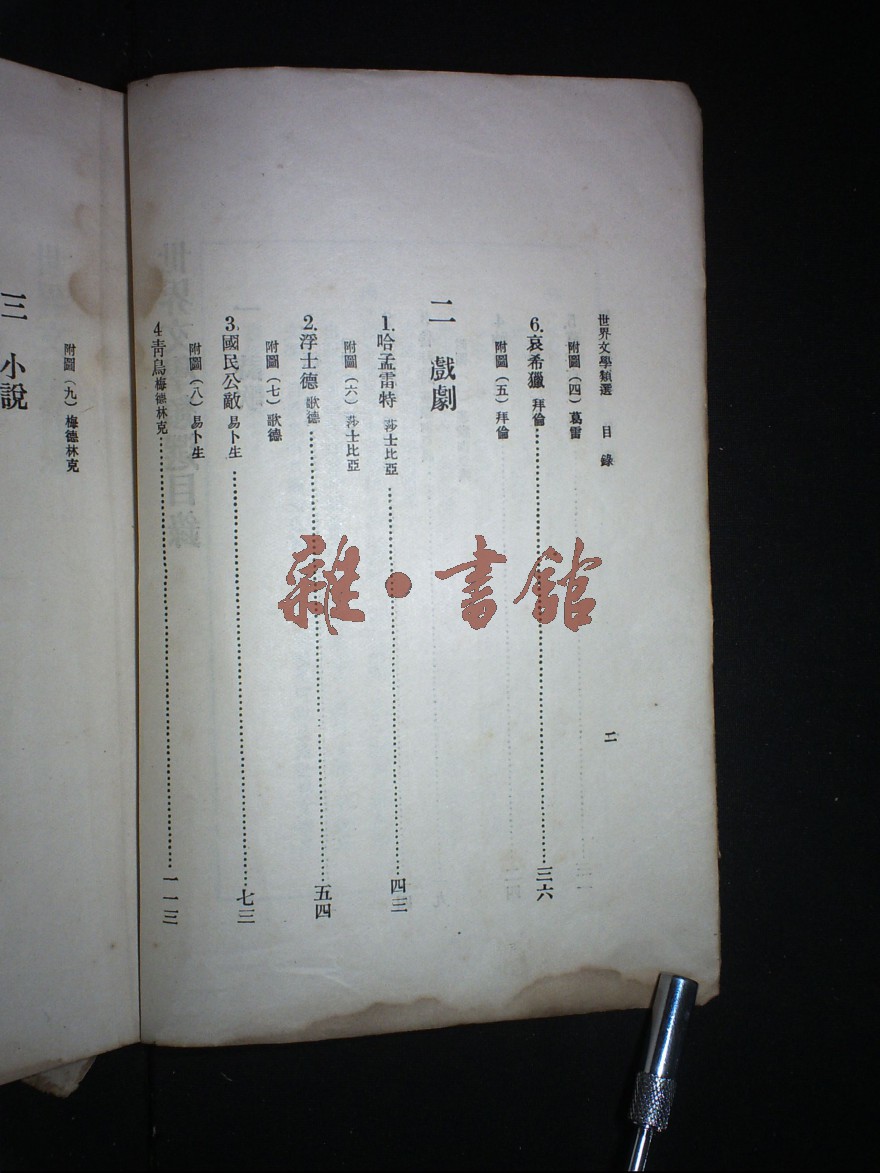 世界文學類選 目錄 二
附圖（四）葛雷
6. 哀希臘 拜倫……三六
附圖（五）拜倫
二 戲劇
1. 哈孟雷特 莎士比亞……四三
附圖（六）莎士比亞
2. 浮士德 歌德……五四
附圖（七）歌德
3. 國民公敵 易卜生……七三
附圖（八）易卜生
4. 青鳥 梅德林克……一一三
附圖（九）梅德林克
三 小說
雜・書館